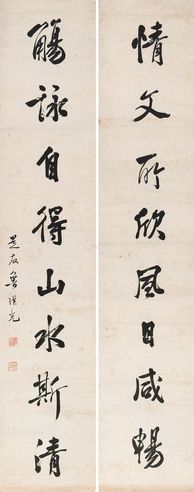 情文所欣風日咸暢
觴詠自得山水斯清
芝友魯琪光